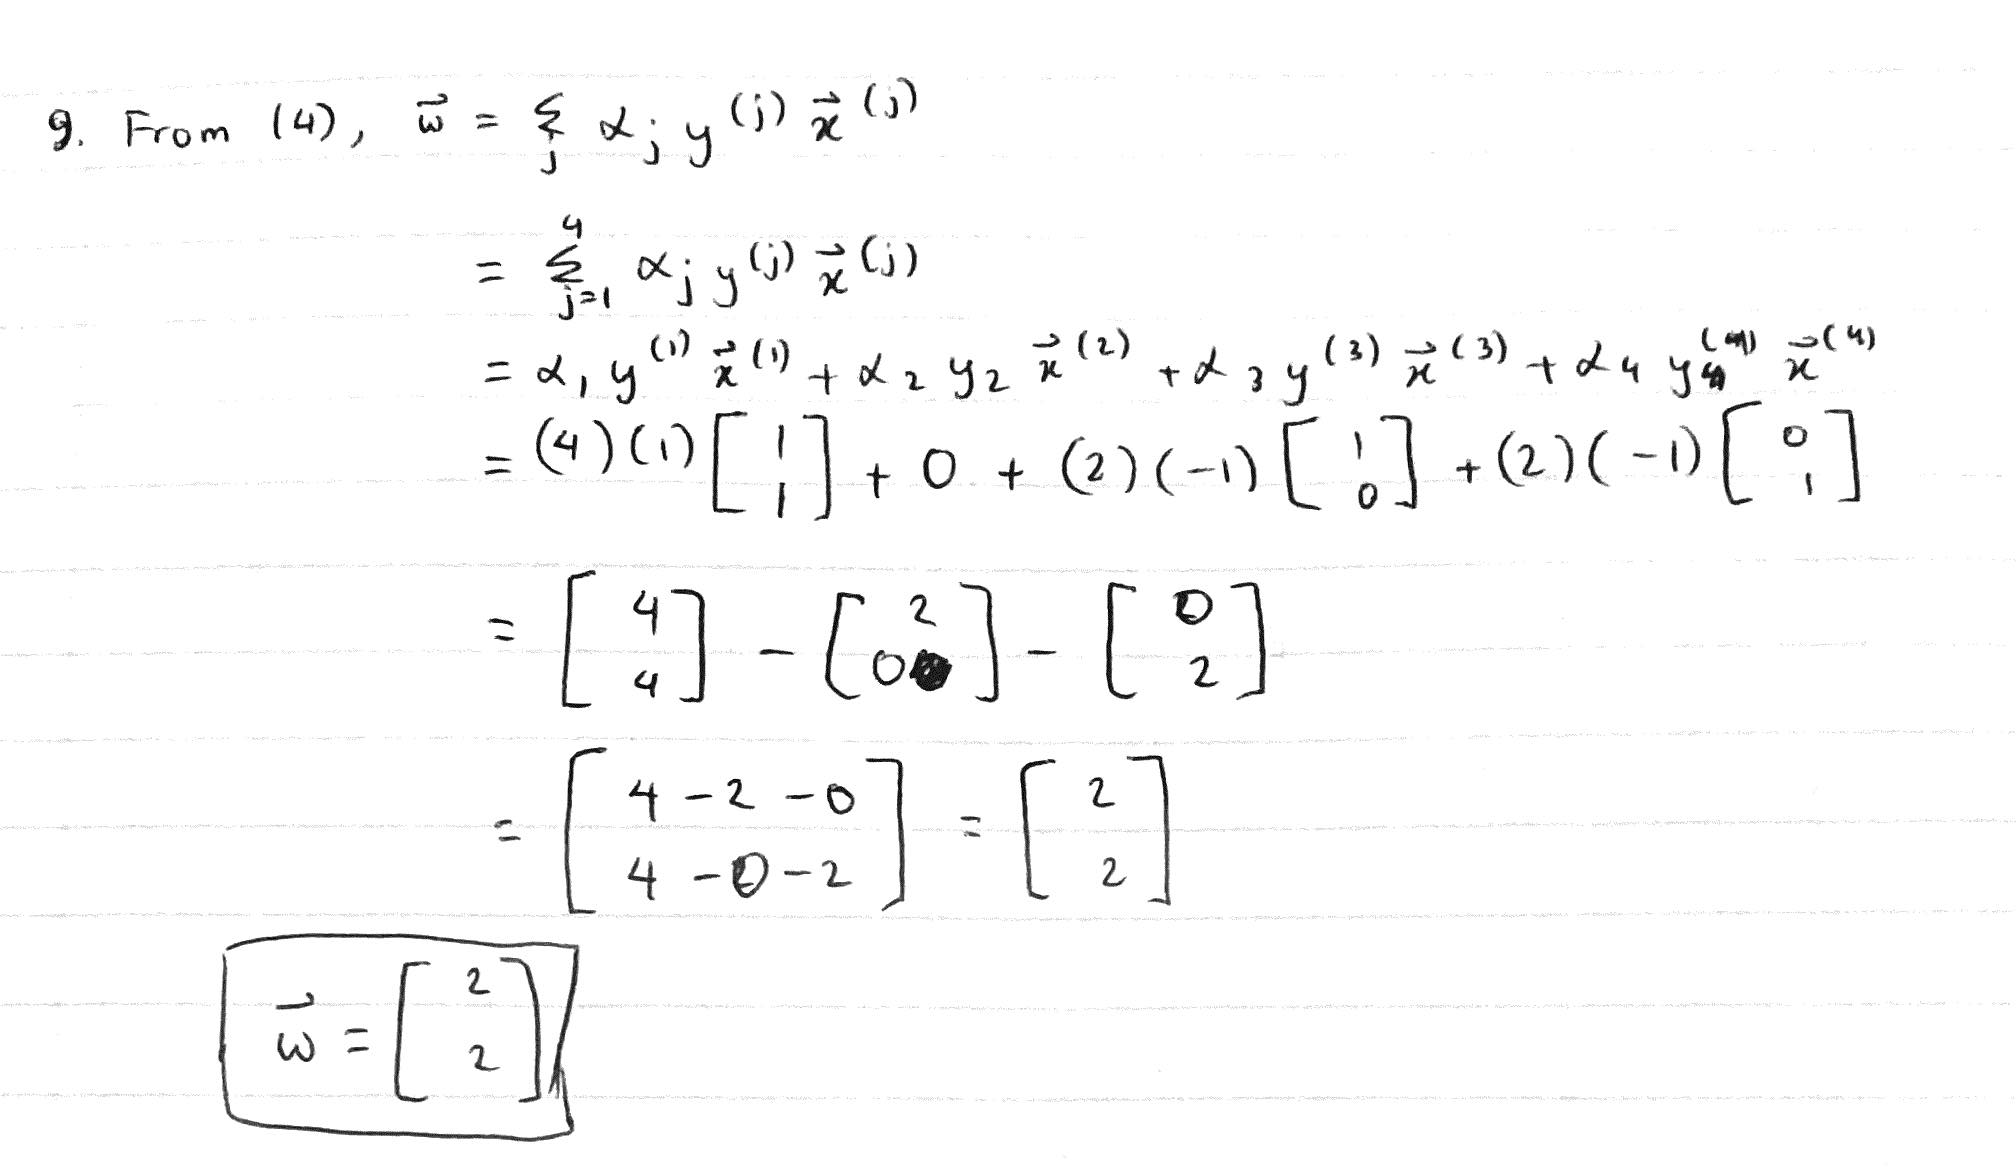 g. From (4), w⃗ = Σ_j α_j y^(j) x⃗^(j)
= Σ_{j=1}^{4} α_j y^(j) x⃗^(j)
= α_1 y^(1) x⃗^(1) + α_2 y_2 x⃗^(2) + α_3 y^(3) x⃗^(3) + α_4 y^(4) x⃗^(4)
= (4)(1) [1; 1] + 0 + (2)(-1) [1; 0] + (2)(-1) [0; 1]
= [4; 4] - [2; 0] - [0; 2]
= [4-2-0; 4-0-2] = [2; 2]
w⃗ = [2; 2]